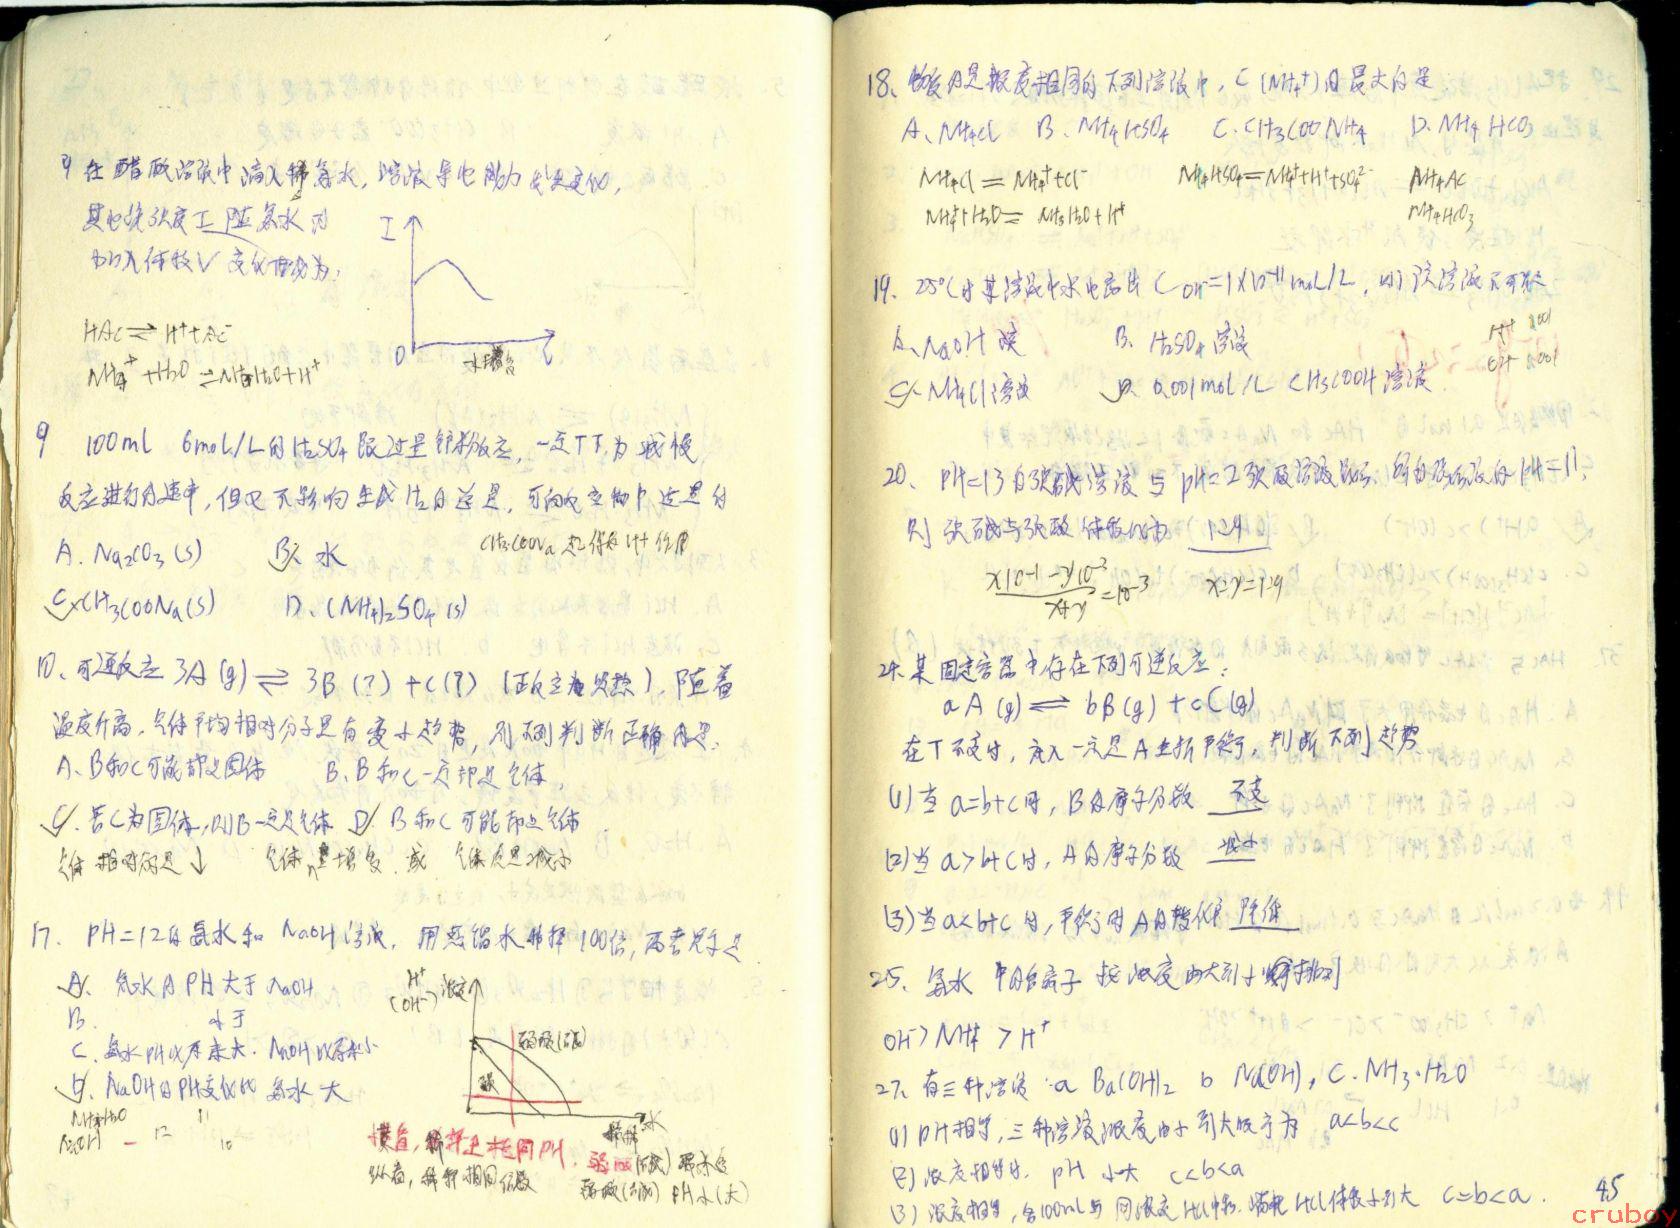 在醋酸溶液中滴入稀氨水，溶液导电能力发生变化，
其电流强度I随氨水的
加入体积V变化曲线为：
I
O
V
HAc⇌H⁺+Ac⁻
NH₄⁺+H₂O⇌NH₃·H₂O+H⁺
9 100ml 6mol/L的H₂SO₄跟过量锌粉反应，一定T下，为减慢
反应进行的速率，但又不影响生成H₂的总量，可向反应物中适量的
A. Na₂CO₃(s) B. 水
CH₃COONa
C. CH₃COONa(s) D. (NH₄)₂SO₄(s)
10、可逆反应 3A(g)⇌3B(?)+C(?) (正反应为吸热)，随着
温度升高，气体平均相对分子量有变小趋势，则下列判断正确的是：
A、B和C可能都是固体 B、B和C一定都是气体，
C、若C为固体，则B一定是气体 D、B和C可能都是气体
气体相对分子量↓ 气体n量增多 或 气体质量减小
17、PH=12的氨水和NaOH溶液，用蒸馏水稀释100倍，两者关系是
A. 氨水的PH大于NaOH
B. 小于
C. 氨水PH比原来大，NaOH比原来小
D. NaOH的PH变化比氨水大
NH₃·H₂O 11
NaOH 12 10
H⁺
(OH⁻) 浓度
弱酸(碱)
强
稀释 水
横看，稀释至相同PH，弱酸(碱)
纵看，稀释相同倍数 弱酸(碱) PH小(大)
18、物质的量浓度相同的下列溶液中，C(NH₄⁺)的最大的是
A、NH₄Cl B. NH₄HSO₄ C. CH₃COONH₄ D. NH₄HCO₃
NH₄Cl=NH₄⁺+Cl⁻ NH₄HSO₄=NH₄⁺+H⁺+SO₄²⁻ NH₄Ac
NH₄⁺+H₂O⇌NH₃·H₂O+H⁺ NH₄HCO₃
19、25℃时某溶液中水电离出C OH⁻=1×10⁻¹¹mol/L，则该溶液不可能
A、NaOH溶液 B、H₂SO₄溶液
H⁺ 0.001
OH⁻ 0.001
C、NH₄Cl溶液 D、0.001mol/L CH₃COOH溶液
20、PH=13的强碱溶液与pH=2强酸溶液混合，所的混合液的pH=11，
则强碱与强酸体积比为 1:9
x10⁻¹-y10⁻²/x+y=10⁻³ x:y=1:9
24、某固定容器中存在下列可逆反应：
aA(g)⇌bB(g)+cC(g)
在T不变时，充入一定量A重新平衡，判断下列趋势
(1)当a=b+c时，B的摩尔分数 不变
(2)当a>b+c时，A的摩尔分数 减小
(3)当a<b+c时，平衡时A的转化率 降低
25、氨水中的各离子按浓度由大到小顺序排列
OH⁻>NH₄⁺>H⁺
27、有三种溶液：a Ba(OH)₂ b Na(OH), C. NH₃·H₂O
(1) PH相等，三种溶液浓度由小到大顺序为 a<b<c
(2) 浓度相等时，pH小大 c<b<a
(3) 浓度相等，各100mL与同浓度HCl中和，消耗HCl体积小到大 c=b<a.
45
cruboy